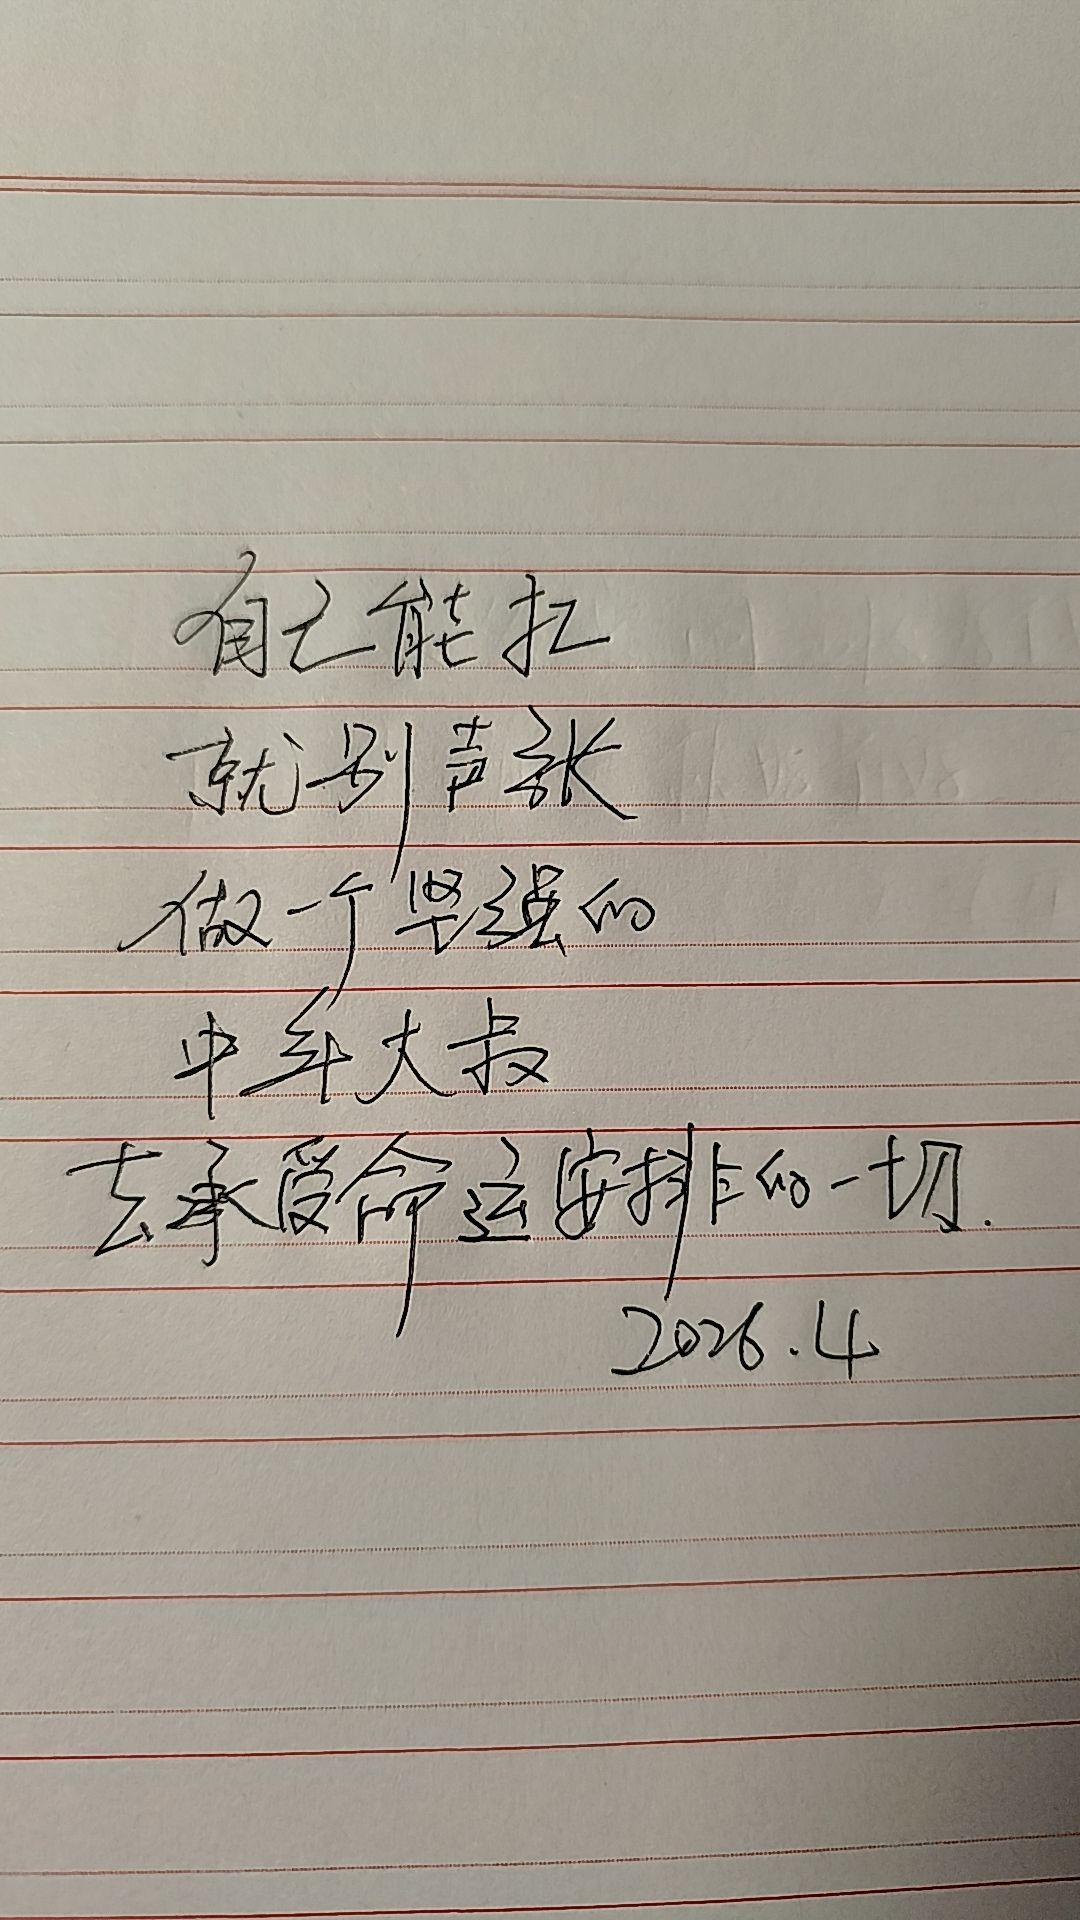 自己能扛
就别声张
做一个坚强的
中年大叔
去承受命运安排的一切.
2026.4